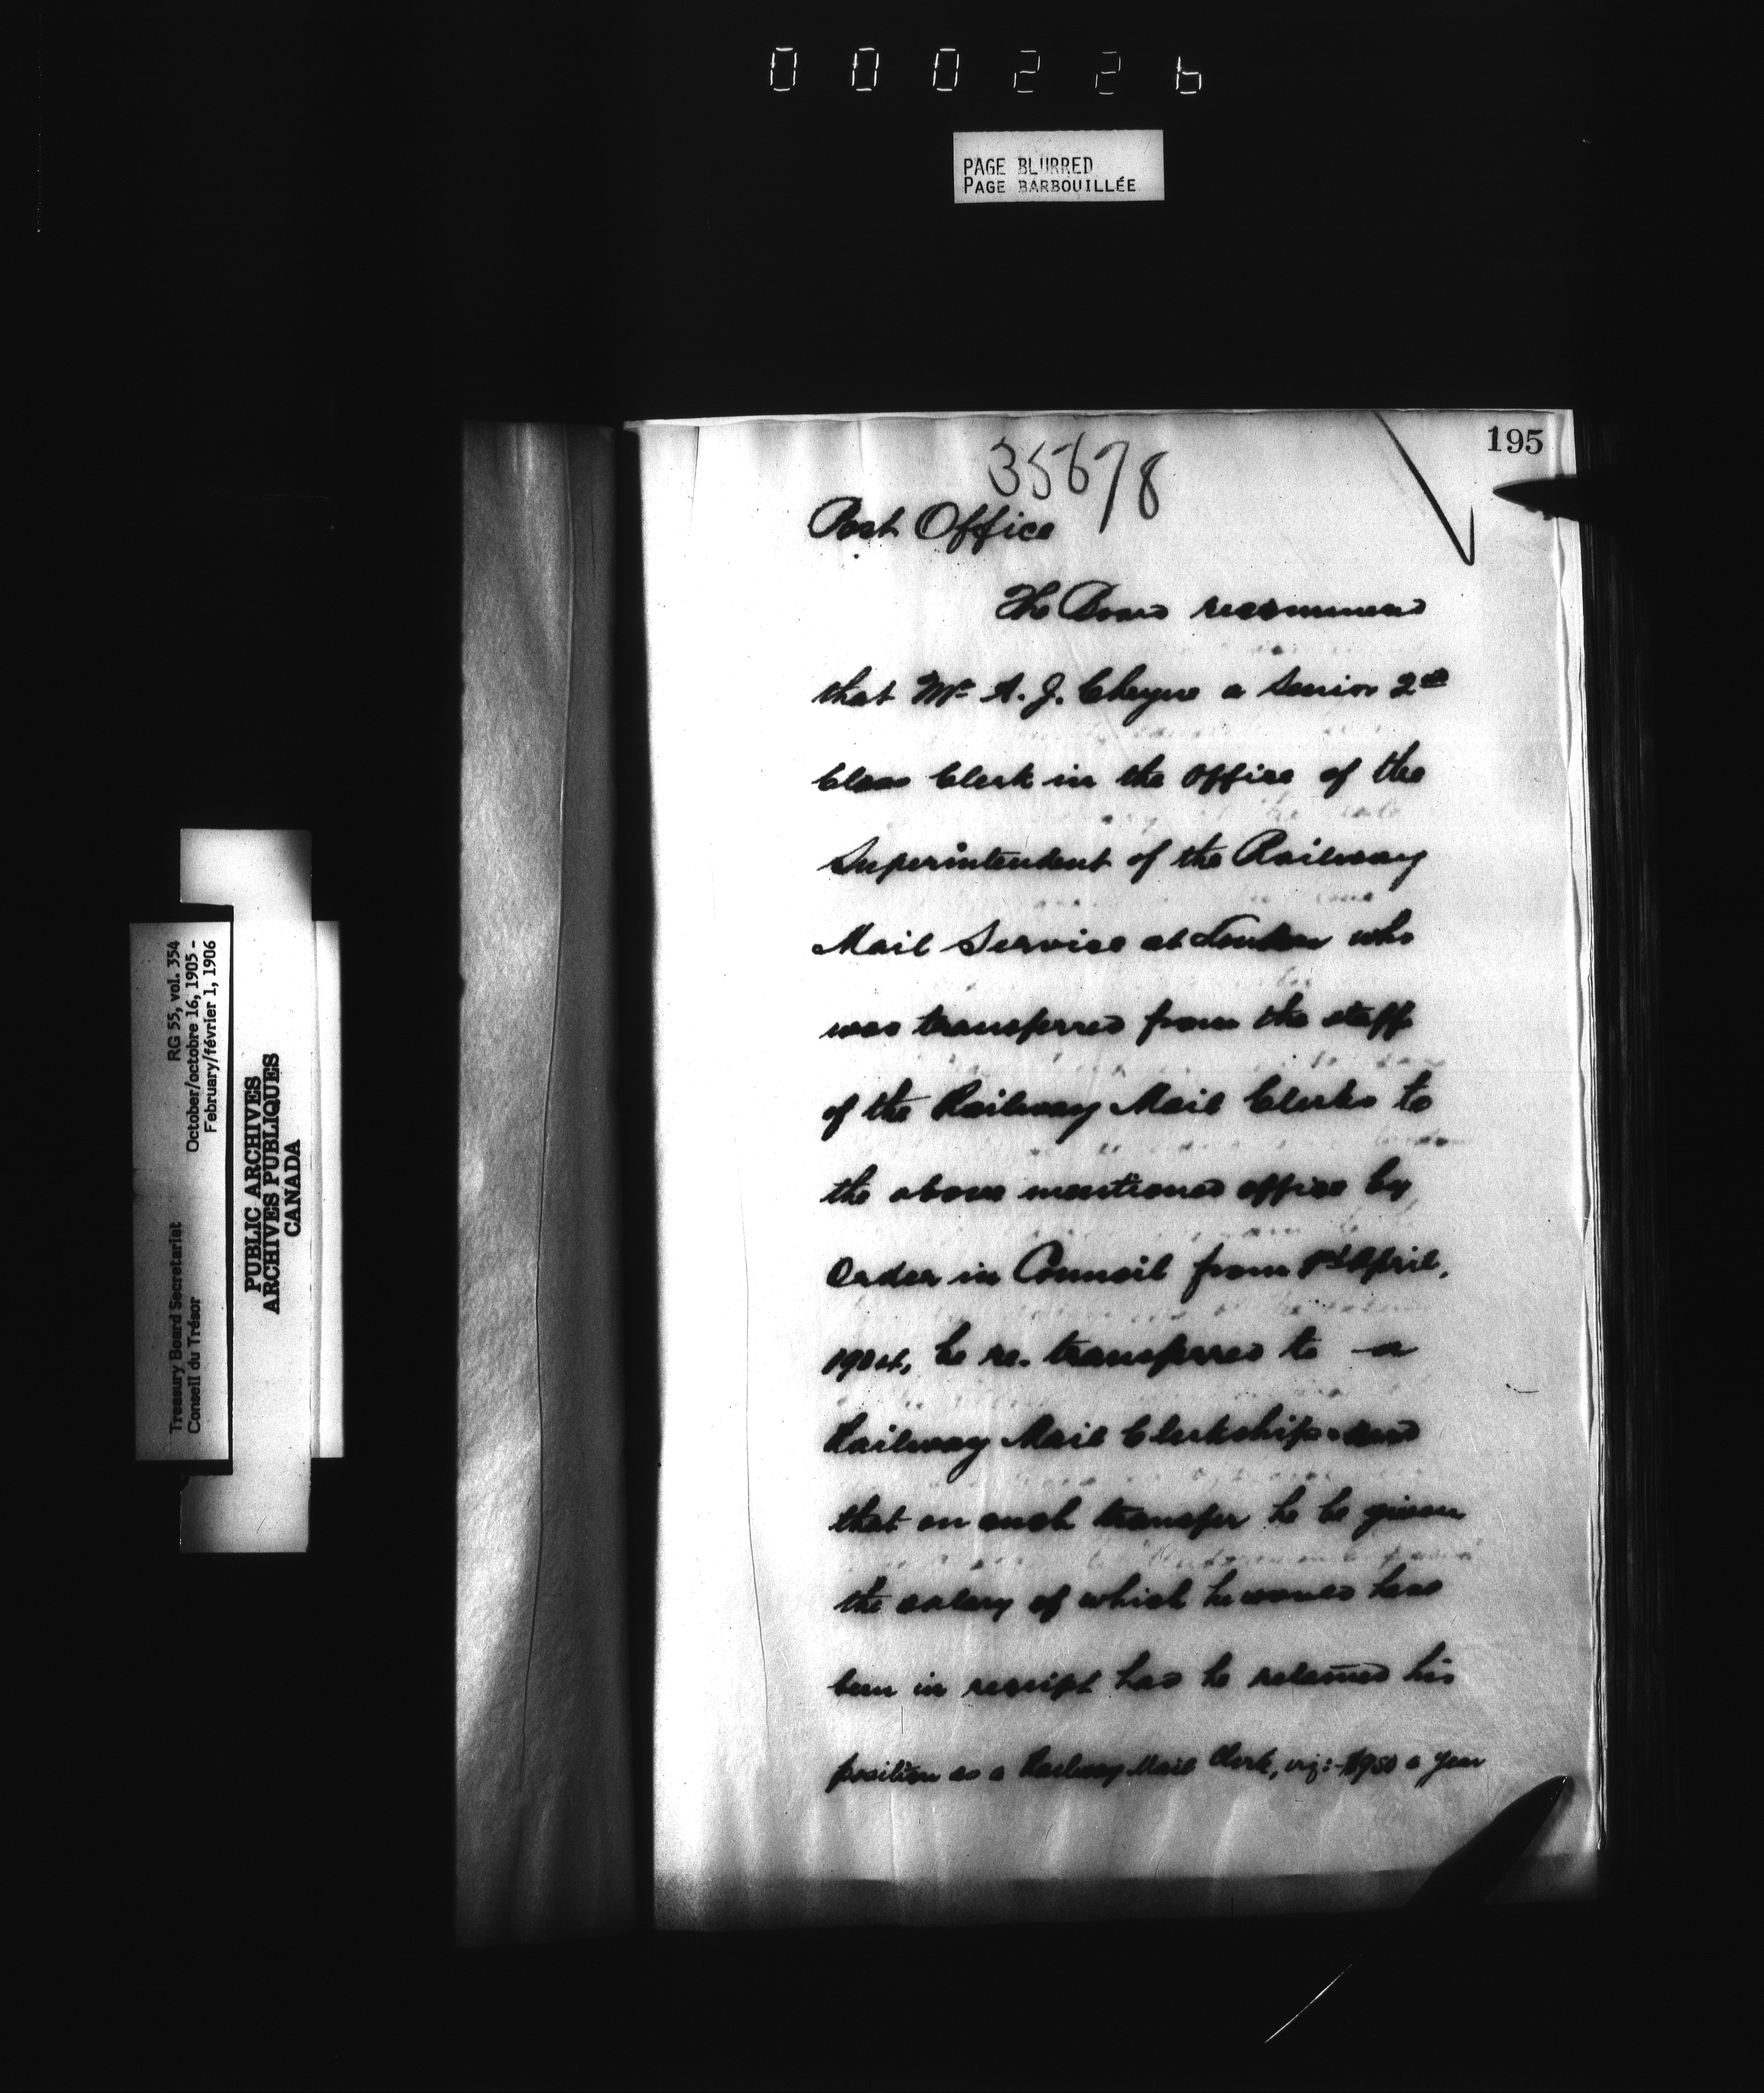 000226
PAGE BLURRED
PAGE BARBOUILLÉE
195
35678
Post Office
The Board recommend
that Mr A. J. Cheyne a Senior 2nd
Class Clerk in the Office of the
Superintendent of the Railway
Mail Service at London who
was transferred from the staff
of the Railway Mail Clerks to
the above mentioned office by
Order in Council from 1st April,
1904, be re-transferred to a
Railway Mail Clerkship and
that on such transfer he be given
the salary of which he would have
been in receipt had he retained his
position as a Railway Mail Clerk, viz:- $950 a year
Treasury Board Secretariat RG 55, vol. 354
Conseil du Trésor October/octobre 16, 1905 -
February/février 1, 1906
PUBLIC ARCHIVES
ARCHIVES PUBLIQUES
CANADA